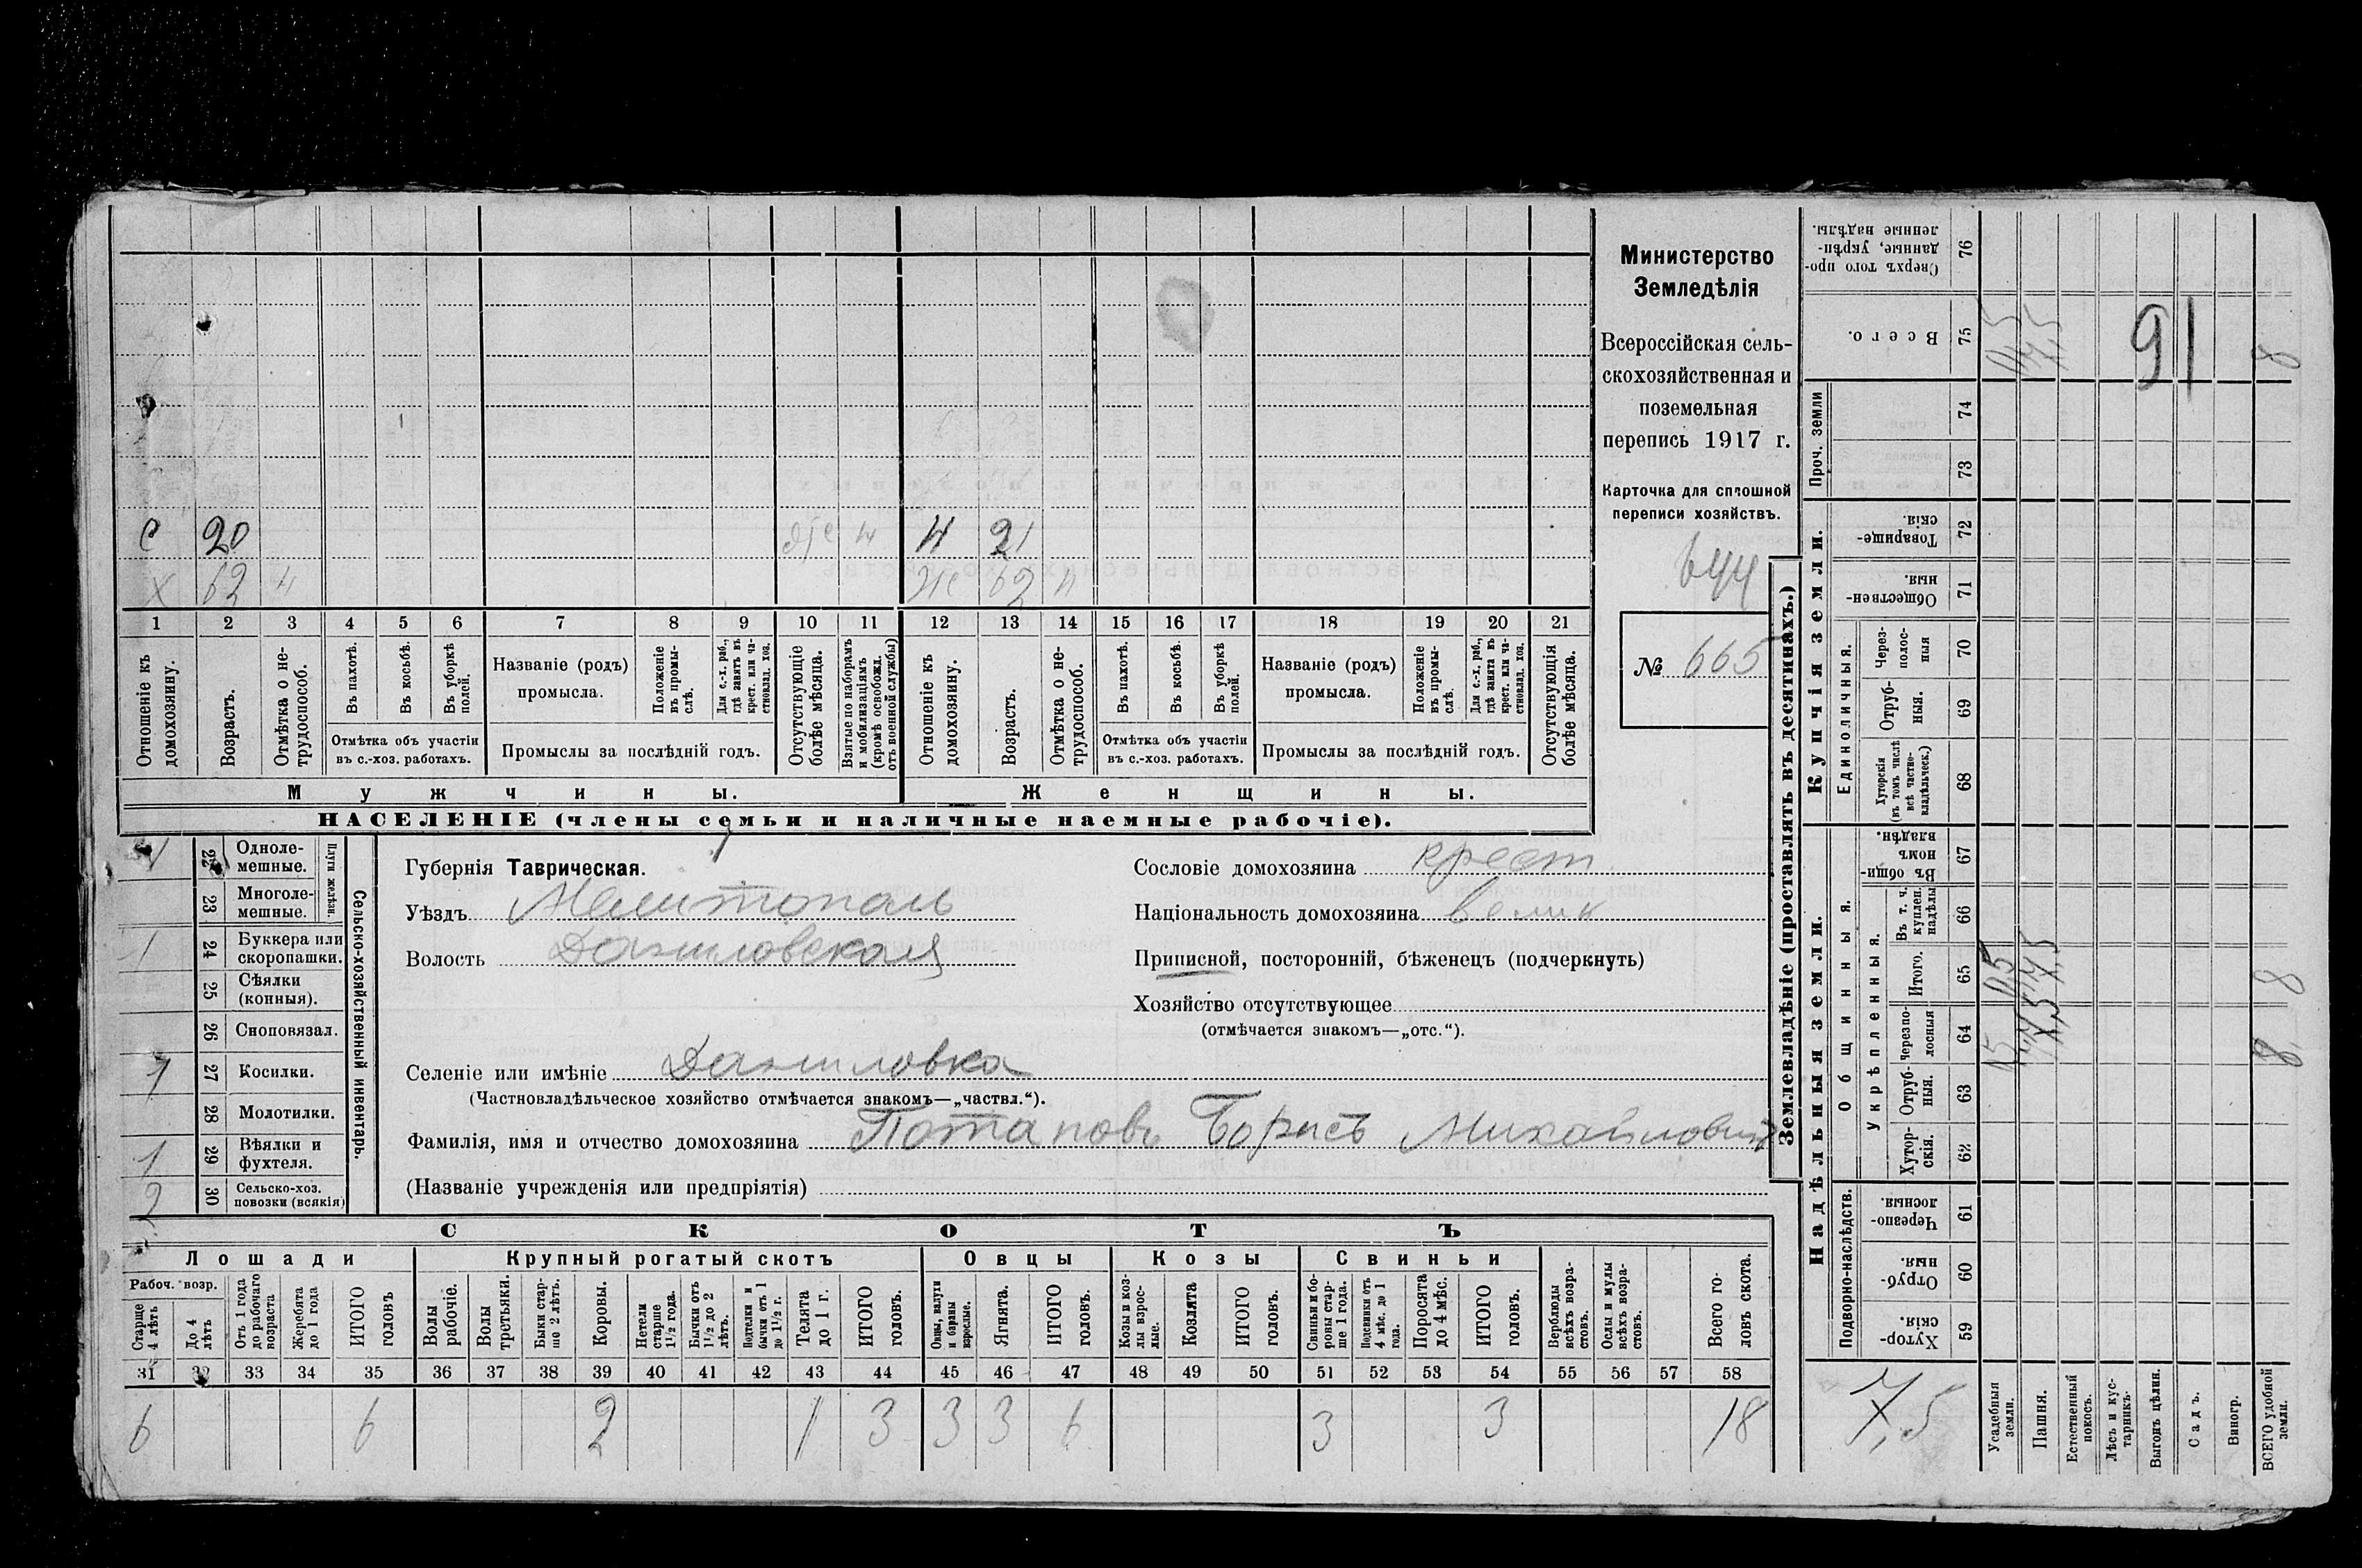 С 20 Н 21
Х 62 Н Ж 62 Н
1 2 3 4 5 6 7 8 9 10 11 12 13 14 15 16 17 18 19 20 21
Отношеніе къ домохозяину.
Возрастъ.
Отмѣтка о нетрудоспособ.
Въ пахотѣ.
Въ косьбѣ.
Въ уборкѣ полей.
Отмѣтка объ участіи въ с.-хоз. работахъ.
Названіе (родъ) промысла.
Положеніе въ промыслѣ.
Для с.-х. раб., гдѣ занятъ въ крест. или частновлад. хоз.
Промыслы за послѣдній годъ.
Отсутствующіе болѣе мѣсяца.
Взятые по наборамъ и мобилизаціямъ (кромѣ освобожд. отъ военной службы)
Отношеніе къ домохозяину.
Возрастъ.
Отмѣтка о нетрудоспособ.
Въ пахотѣ.
Въ косьбѣ.
Въ уборкѣ полей.
Отмѣтка объ участіи въ с.-хоз. работахъ.
Названіе (родъ) промысла.
Положеніе въ промыслѣ.
Для с.-х. раб., гдѣ занята въ крест. или частновлад. хоз.
Промыслы за послѣдній годъ.
Отсутствующія болѣе мѣсяца.
Мужчины.
Женщины.
НАСЕЛЕНІЕ (члены семьи и наличные наемные рабочіе).
Министерство
Земледѣлія
Всероссійская сель-
скохозяйственная и
поземельная
перепись 1917 г.
Карточка для сплошной
переписи хозяйствъ.
644
№ 665
1 22 Однолемешные.
23 Многолемешные.
Плуги желѣзн.
1 24 Буккера или скоропашки.
25 Сѣялки (конныя).
26 Сноповязал.
1 27 Косилки.
28 Молотилки.
1 29 Вѣялки и фухтеля.
2 30 Сельско-хоз. повозки (всякія)
Сельско-хозяйственный инвентарь.
Губернія Таврическая.
Уѣздъ Мелитополь
Волость Даниловская
Сословіе домохозяина крест.
Національность домохозяина велик
Приписной, посторонній, бѣженецъ (подчеркнуть)
Хозяйство отсутствующее
(отмѣчается знакомъ—„отс.“).
Селеніе или имѣніе Даниловка
(Частновладѣльческое хозяйство отмѣчается знакомъ—„частвл.“).
Фамилія, имя и отчество домохозяина Потаповъ Борисъ Михайловичъ
(Названіе учрежденія или предпріятія)
СКОТЪ
Лошади Крупный рогатый скотъ Овцы Козы Свиньи
Рабоч. возр.
Старше 4 лѣтъ
До 4 лѣтъ
Отъ 1 года до рабочаго возраста
Жеребята до 1 года
ИТОГО головъ
Волы рабочіе.
Волы третьяки.
Быки старше 2 лѣтъ.
Коровы.
Нетели старше 1 1/2 года.
Бычки отъ 1 1/2 до 2 лѣтъ.
Подтелки и бычки отъ 1 до 1 1/2 г.
Телята до 1 г.
ИТОГО головъ.
Овцы, валухи и бараны взрослые.
Ягнята.
ИТОГО головъ.
Козы и козлы взрослые.
Козлята
ИТОГО головъ.
Свиньи и боровы старше 1 года.
Подсвинки отъ 4 мѣс. до 1 года.
Поросята до 4 мѣс.
ИТОГО головъ.
Верблюды всѣхъ возрастовъ.
Ослы и мулы всѣхъ возрастовъ.
Всего головъ скота.
31 32 33 34 35 36 37 38 39 40 41 42 43 44 45 46 47 48 49 50 51 52 53 54 55 56 57 58
6 6 2 1 3 3 3 6 3 3 18
Землевладѣніе (проставлять въ десятинахъ.)
Купчія земли.
Надѣльныя земли.
Сверхъ того проданные, укрѣпленные надѣлы. 76
Всего. 75
91
8
Проч. земли
74
73
Товарищескія. 72
Общественныя. 71
Единоличныя.
Черезполосныя 70
Отрубныя. 69
Хуторскія (въ томъ числѣ всѣ частновладѣльческ.) 68
Общинныя.
Въ общинномъ владѣн. 67
Укрѣпленныя.
Въ т. ч. куплен. надѣлы 66
Итого. 65
0,5 7,5 8
Черезполосныя 64
0,5 7,5 8
Отрубныя. 63
Хуторскія. 62
Подворно-наслѣдств.
Черезполосныя. 61
Отрубныя. 60
Хуторскія. 59
7,5
Усадебныя земли.
Пашня.
Естественный покосъ.
Лѣсъ и кустарникъ.
Выгонъ цѣлин.
Садъ.
Виногр.
ВСЕГО удобной земли.